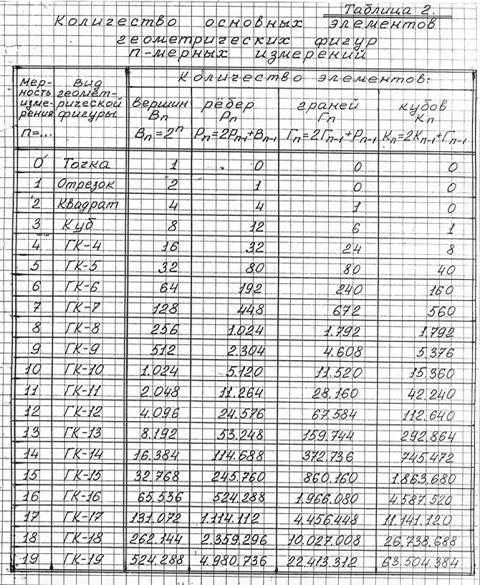 Таблица 2.
Количество основных элементов
геометрических фигур
n-мерных измерений
Мерность измерения n=... Вид геометрической фигуры Количество элементов:
Вершин Bn Bn=2ⁿ рёбер Pn Pn=2Pn-1+Bn-1 граней Гn Гn=2Гn-1+Pn-1 кубов Kn Kn=2Kn-1+Гn-1
0 Точка 1 0 0 0
1 Отрезок 2 1 0 0
2 Квадрат 4 4 1 0
3 Куб 8 12 6 1
4 ГК-4 16 32 24 8
5 ГК-5 32 80 80 40
6 ГК-6 64 192 240 160
7 ГК-7 128 448 672 560
8 ГК-8 256 1.024 1.792 1.792
9 ГК-9 512 2.304 4.608 5.376
10 ГК-10 1.024 5.120 11.520 15.360
11 ГК-11 2.048 11.264 28.160 42.240
12 ГК-12 4.096 24.576 67.584 112.640
13 ГК-13 8.192 53.248 159.744 292.864
14 ГК-14 16.384 114.688 372.736 745.472
15 ГК-15 32.768 245.760 860.160 1.863.680
16 ГК-16 65.536 524.288 1.966.080 4.587.520
17 ГК-17 131.072 1.114.112 4.456.448 11.141.120
18 ГК-18 262.144 2.359.296 10.027.008 26.738.688
19 ГК-19 524.288 4.980.736 22.413.312 63.504.384